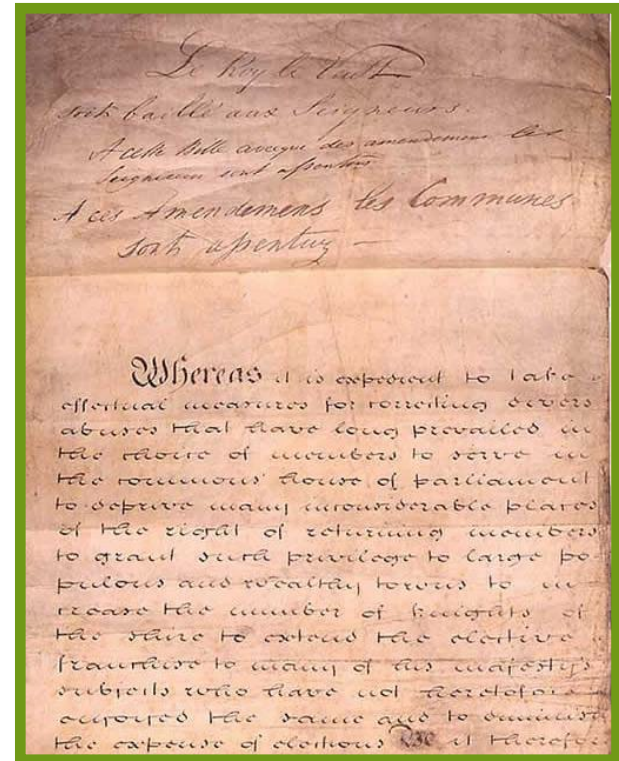 Le Roy le Veult
soit baillé aux Seigneurs.
A ceste Bille avecque des amendemens les
Seigneurs sont assentus
A ces Amendemens les Communes
sont assentuz —
Whereas it is expedient to take
effectual measures for correcting divers
abuses that have long prevailed in
the choice of members to serve in
the commons house of parliament
to deprive many inconsiderable places
of the right of returning members
to grant such privilege to large po
pulous and wealthy towns to in
crease the number of knights of
the shire to extend the elective
franchise to many of his majesty's
subjects who have not heretofore
enjoyed the same and to diminish
the expense of elections Be it therefore